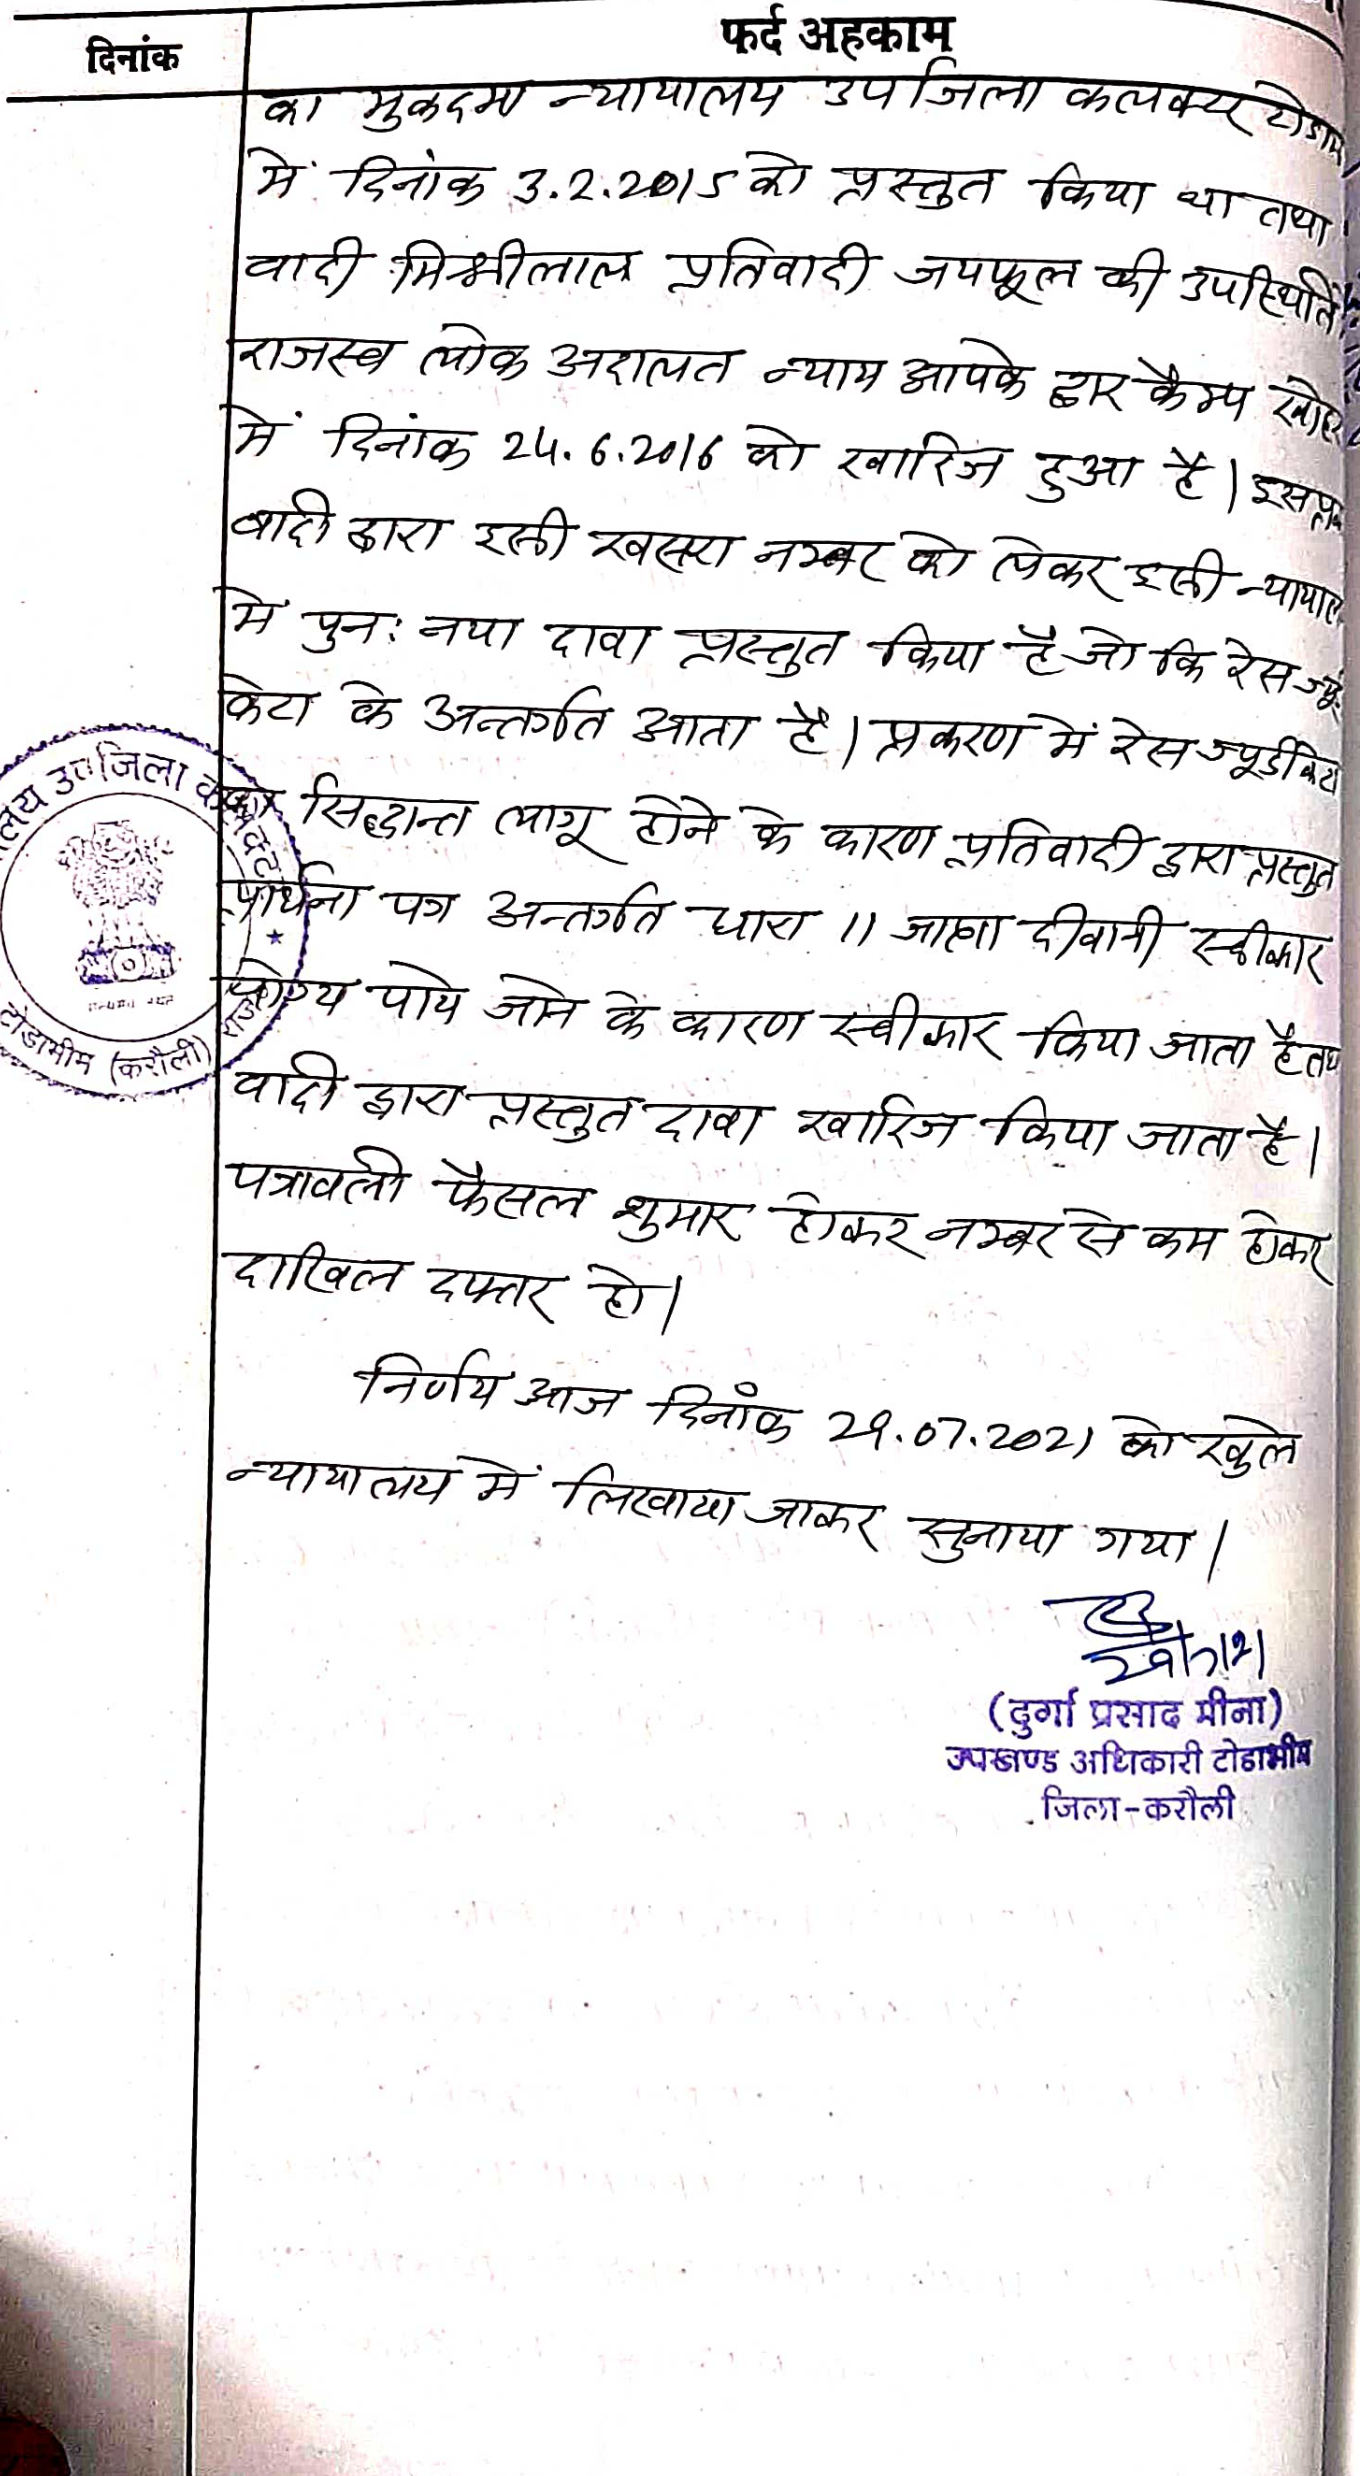 फर्द अहकाम
दिनांक
का मुकदमा न्यायालय उपजिला कलक्टर
में दिनांक 3.2.2015 को प्रस्तुत किया था तथा
वादी मिश्रीलाल प्रतिवादी जयफूल की उपस्थिति
राजस्व लोक अदालत न्याय आपके द्वार कैम्प
में दिनांक 24.6.2016 को खारिज हुआ है।
वादी द्वारा इसी खसरा नम्बर को लेकर इसी
में पुनः नया दावा प्रस्तुत किया है जो कि रेस
केटा के अन्तर्गत आता है। प्रकरण में रेस ज्यूडीकेटा
का सिद्धान्त लागू होने के कारण प्रतिवादी द्वारा प्रस्तुत
प्रार्थना पत्र अन्तर्गत धारा 11 जाप्ता दीवानी स्वीकार
योग्य पाये जाने के कारण स्वीकार किया जाता है
वादी द्वारा प्रस्तुत दावा खारिज किया जाता है।
पत्रावली फैसल शुमार होकर नम्बर से कम होकर
दाखिल दफ्तर हो।
निर्णय आज दिनाँक 29.07.2021 को खुले
न्यायालय में लिखाया जाकर सुनाया गया।
(दुर्गा प्रसाद मीना)
उपखण्ड अधिकारी टोडाभीम
जिला-करौली
उपजिला
टोडाभीम (करौली)